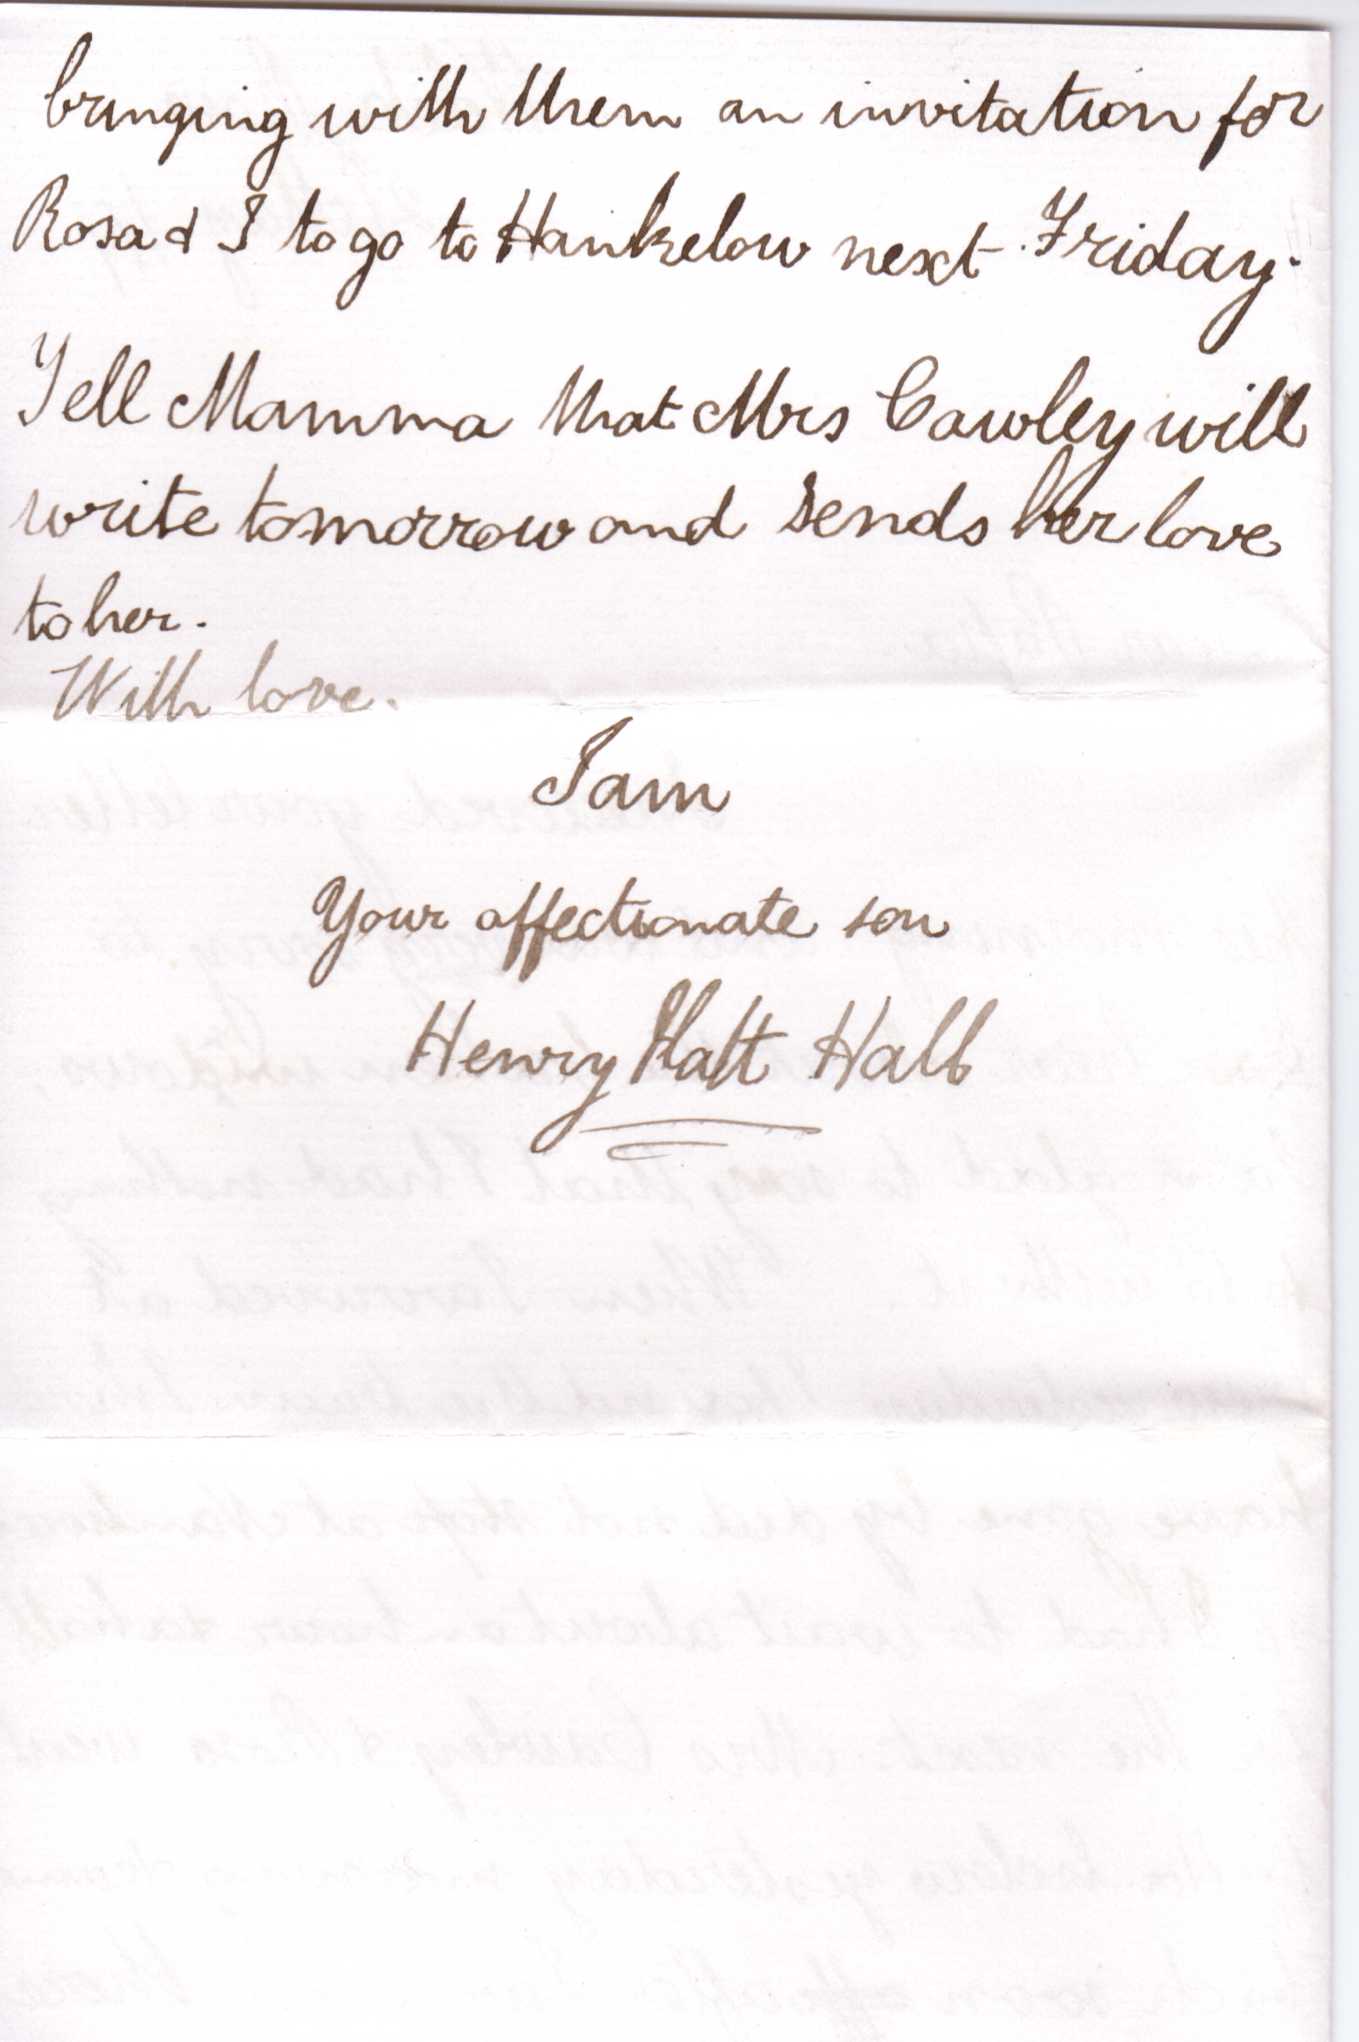 bringing with them an invitation for
Rosa & I to go to Hankelow next Friday.
Tell Mamma that Mrs Cawley will
write tomorrow and sends her love
to her.
With love.
I am
Your affectionate son
Henry Platt Hall